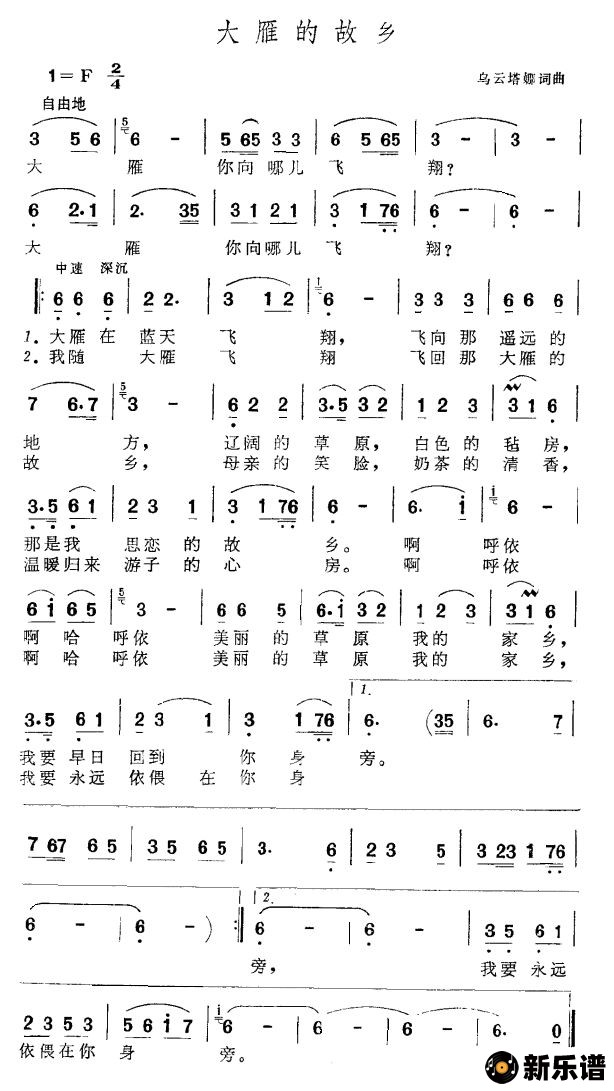 大雁的故乡
1=F 2/4
乌云塔娜词曲
自由地
3 5 6 | 6 - | 5 65 3 3 | 6 5 65 | 3 - | 3 - |
大 雁 你向 哪儿 飞 翔?
6 2·1 | 2· 35 | 31 21 | 3 1 76 | 6 - | 6 - |
大 雁 你向哪儿 飞 翔?
中速 深沉
6 6 6 | 2 2· | 3 1 2 | 6 - | 3 3 3 | 6 6 6 |
1. 大雁 在 蓝天 飞 翔, 飞向 那 遥远 的
2. 我随 大雁 飞 翔 飞回 那 大雁 的
7 6·7 | 3 - | 6 2 2 | 3·5 3 2 | 1 2 3 | 31 6 |
地 方, 辽阔 的 草 原, 白色 的 毡 房,
故 乡, 母亲 的 笑 脸, 奶茶 的 清 香,
3·5 6 1 | 2 3 1 | 3 1 76 | 6 - | 6· i | 6 - |
那是我 思恋 的 故 乡。 啊 呼依
温暖归来 游子 的 心 房。 啊 呼依
6 i 6 5 | 3 - | 6 6 5 | 6·i 3 2 | 1 2 3 | 31 6 |
啊 哈 呼依 美丽 的 草 原 我的 家 乡,
啊 哈 呼依 美丽 的 草 原 我的 家 乡,
1.
3·5 6 1 | 2 3 1 | 3 1 76 | 6· (35 | 6· 7 |
我要 早日 回到 你 身 旁。
我要 永远 依偎 在 你 身
7 67 6 5 | 3 5 6 5 | 3· 6 | 2 3 5 | 3 23 1 76 |
2.
6 - | 6 - ) :| 6 - | 6 - | 3 5 6 1 |
旁, 我要 永远
2 3 5 3 | 5 6 i 7 | 6 - | 6 - | 6 - | 6· 0 |
依偎在你 身 旁。
新乐谱